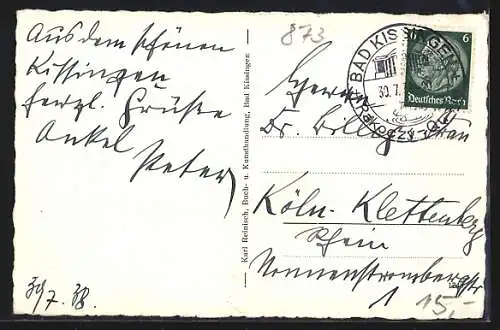 Aus dem schönen
Kissingen
herzl. Grüße
Onkel
Peter
30/7. 38.
Karl Reinisch, Buch- u. Kunsthandlung, Bad Kissingen
873
BAD KISSINGEN
30.7.
6
Deutsches Reich
Herrn
Dr. Willy
Köln-Klettenberg
Rhein
Nonnenstrombergstr
1
15,-